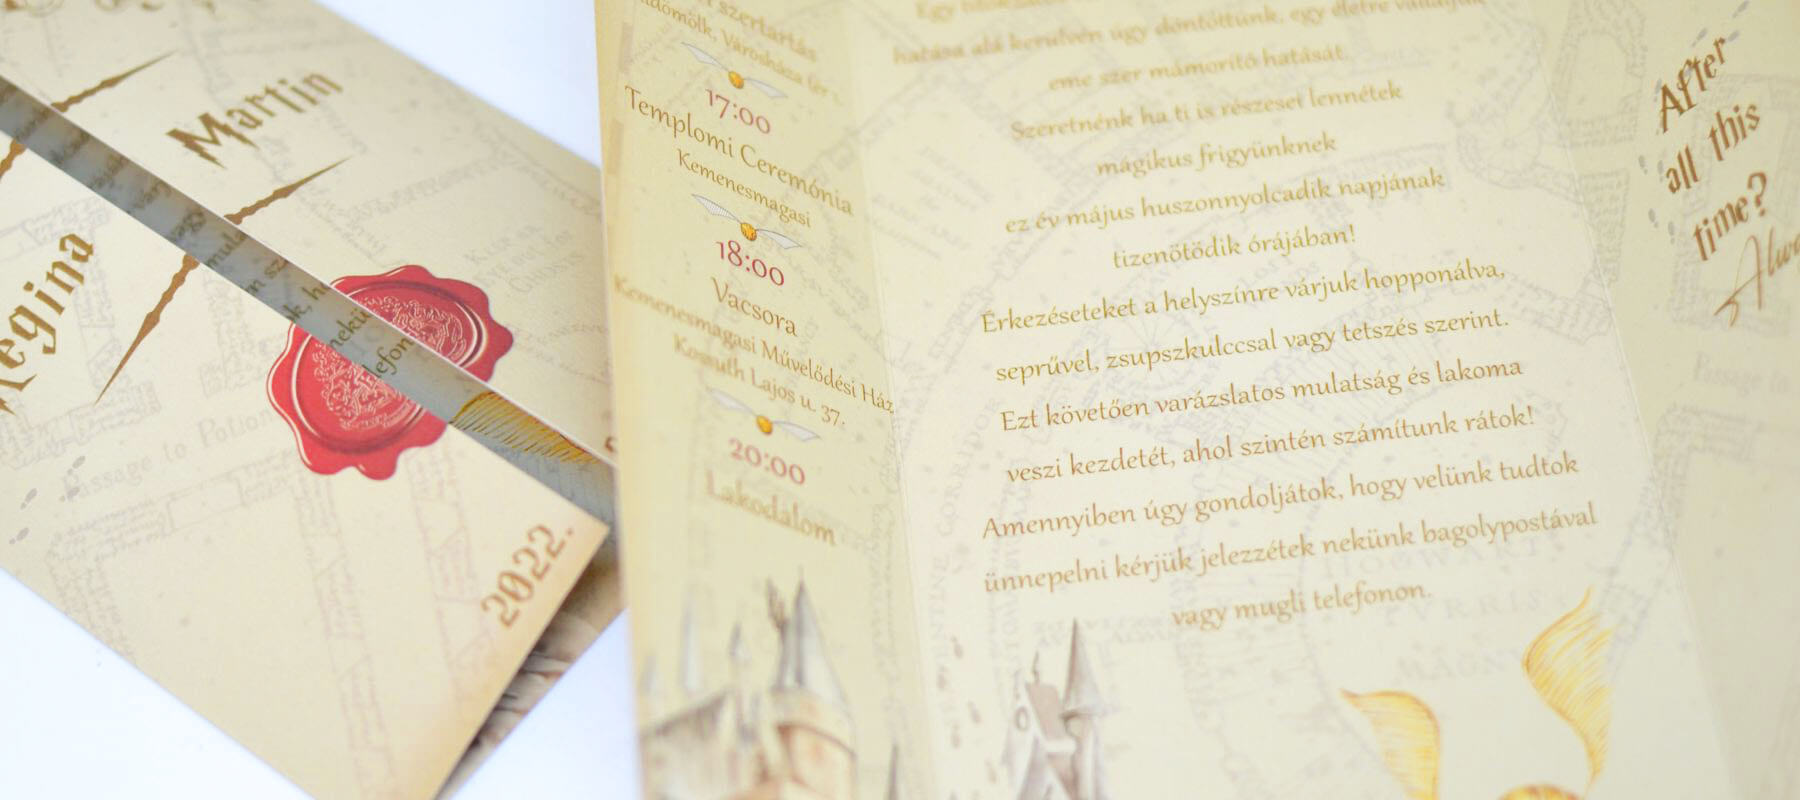 Martin
Regina
Passage to Potion
2022.
szertartás
Városháza
17:00
Templomi Ceremónia
Kemenesmagasi
18:00
Vacsora
Kemenesmagasi Művelődési Ház
Kossuth Lajos u. 37.
20:00
Lakodalom
Egy
hatása alá kerülvén úgy döntöttünk, egy életre vállaljuk
eme szer mámorító hatását.
Szeretnénk ha ti is részesei lennétek
mágikus frigyünknek
ez év május huszonnyolcadik napjának
tizenötödik órájában!
Érkezéseteket a helyszínre várjuk hopponálva,
seprűvel, zsupszkulccsal vagy tetszés szerint.
Ezt követően varázslatos mulatság és lakoma
veszi kezdetét, ahol szintén számítunk rátok!
Amennyiben úgy gondoljátok, hogy velünk tudtok
ünnepelni kérjük jelezzétek nekünk bagolypostával
vagy mugli telefonon.
After
all this
time?